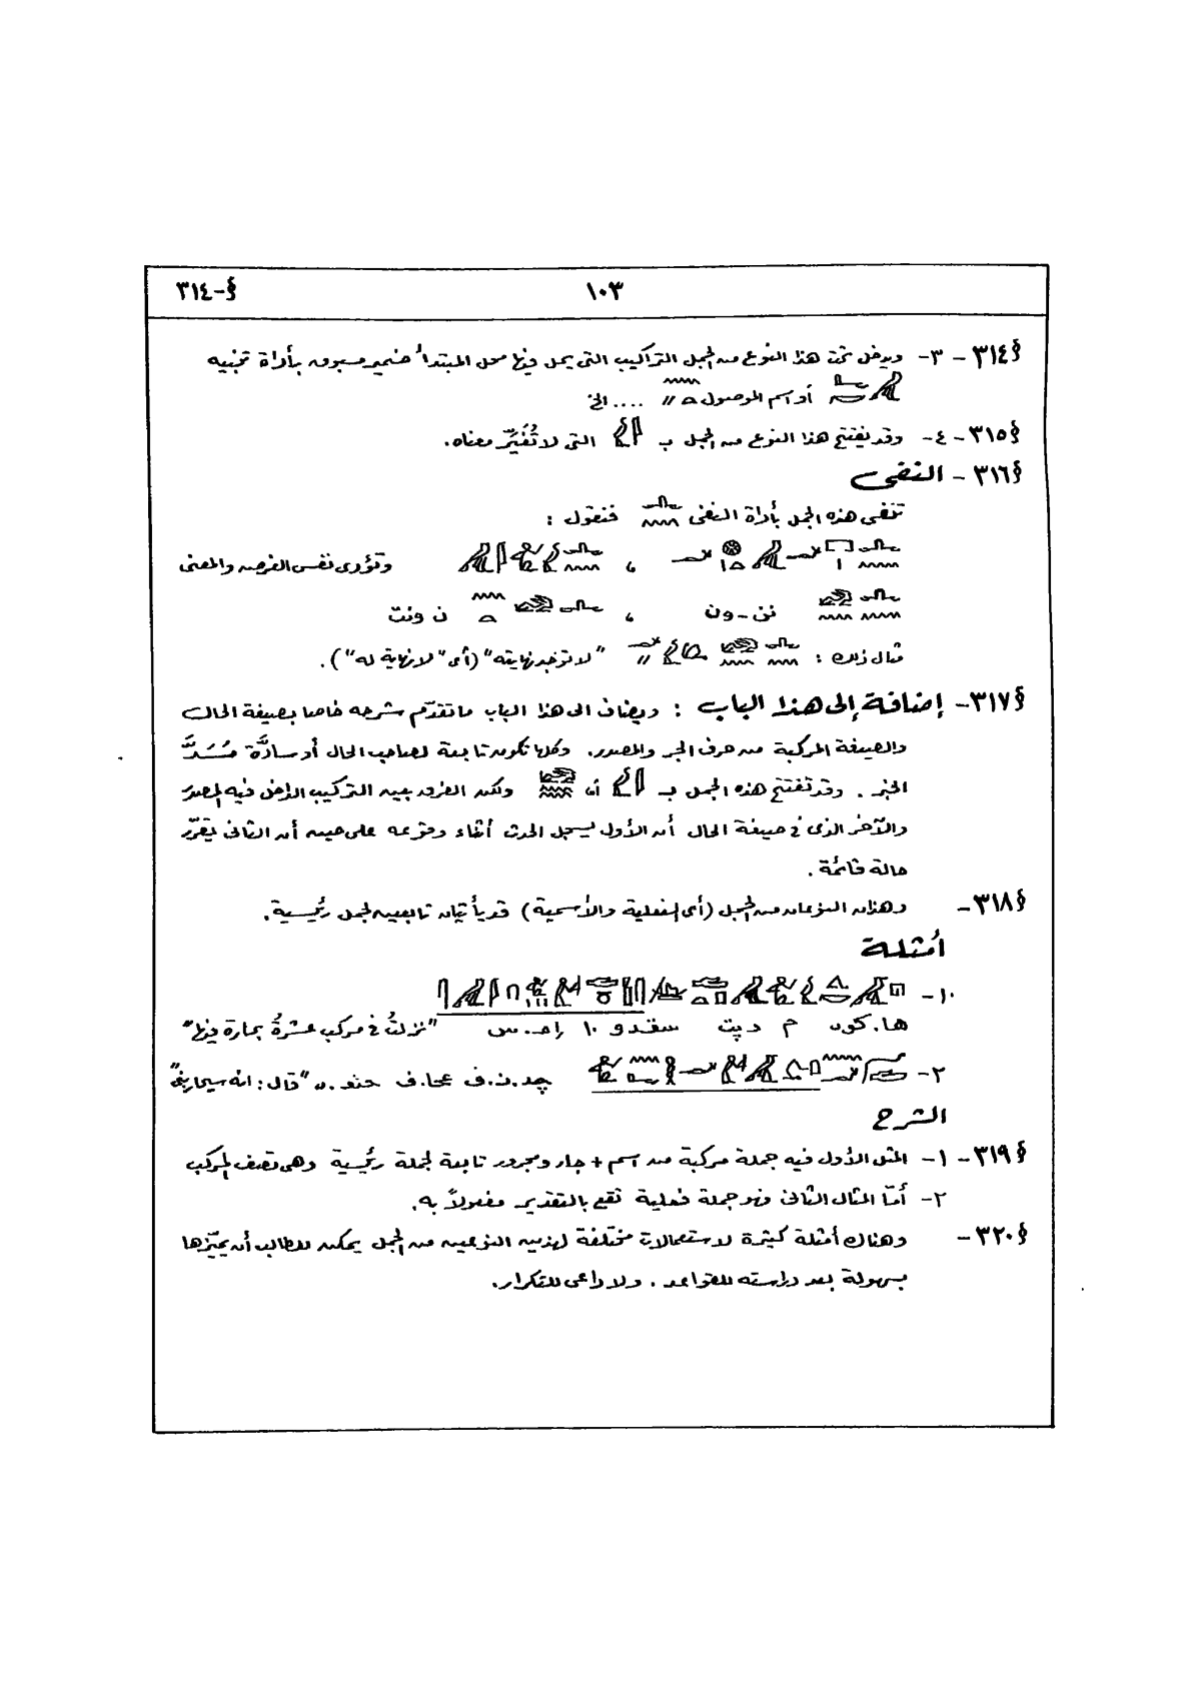 §-٣١٤ ١٠٣
§٣١٤ - ٣- ويدخل تحت هذا النوع من الجمل التراكيب التى يحل فيها محل المبتدأ ضمير مسبوق بأداة تنبيه
أو اسم الموصول .... الخ
§٣١٥ - ٤- وقد تفتتح هذا النوع من الجمل بـ التى لا تُغَيِّر معناه.
§٣١٦ - النفى
تنفى هذه الجمل بأداة النفى فنقول :
، وتؤدى نفس الغرض والمعنى
نن - ون ، ن ونت
مثال ذلك : "لا توجد نهايته" (أى "لا نهاية له") .
§٣١٧ - إضافة إلى هذا الباب : ويضاف الى هذا الباب ما تقدّم شرحه خاصا بصيغة الحال
والصيغة المركبة من حرف الجر والمصدر. وكلها تكون تابعة لصاحب الحال أو سادَّة مَسَدَّ
الخبر . وقد تفتتح هذه الجمل بـ أو ولكن الفرق بين التركيب الداخل فيه المصدر
والآخر الذى فى صيغة الحال أن الأول يسجل الحدث أثناء وقوعه على حين أن الثانى يقرّر
حالة قائمة .
§٣١٨ - وهذان النوعان من الجمل (أى الفعلية والأسمية) قد يأتيان تابعين لجمل رئيسية.
أمثلة
١-
ها.كون م دپت سقدو ١٠ "نزلتُ فى مركب عشرةُ بحارة فيها"
٢- چد.ن.ف عحا.ف حنع. "قال : انه سيحاربنى"
الشرح
§٣١٩ - ١- المثل الأول فيه جملة مركبة من اسم + جار ومجرور تابعة لجملة رئيسية وهى تصف المركب
٢- أمّا المثال الثانى فهو جملة فعلية تقع بالتقدير مفعولاً به.
§٣٢٠ - وهناك أمثلة كثيرة لاستعمالات مختلفة لهذين النوعين من الجمل يمكن للطالب أن يميّزها
بسهولة بعد دراسته للقواعد . ولا داعى للتكرار.